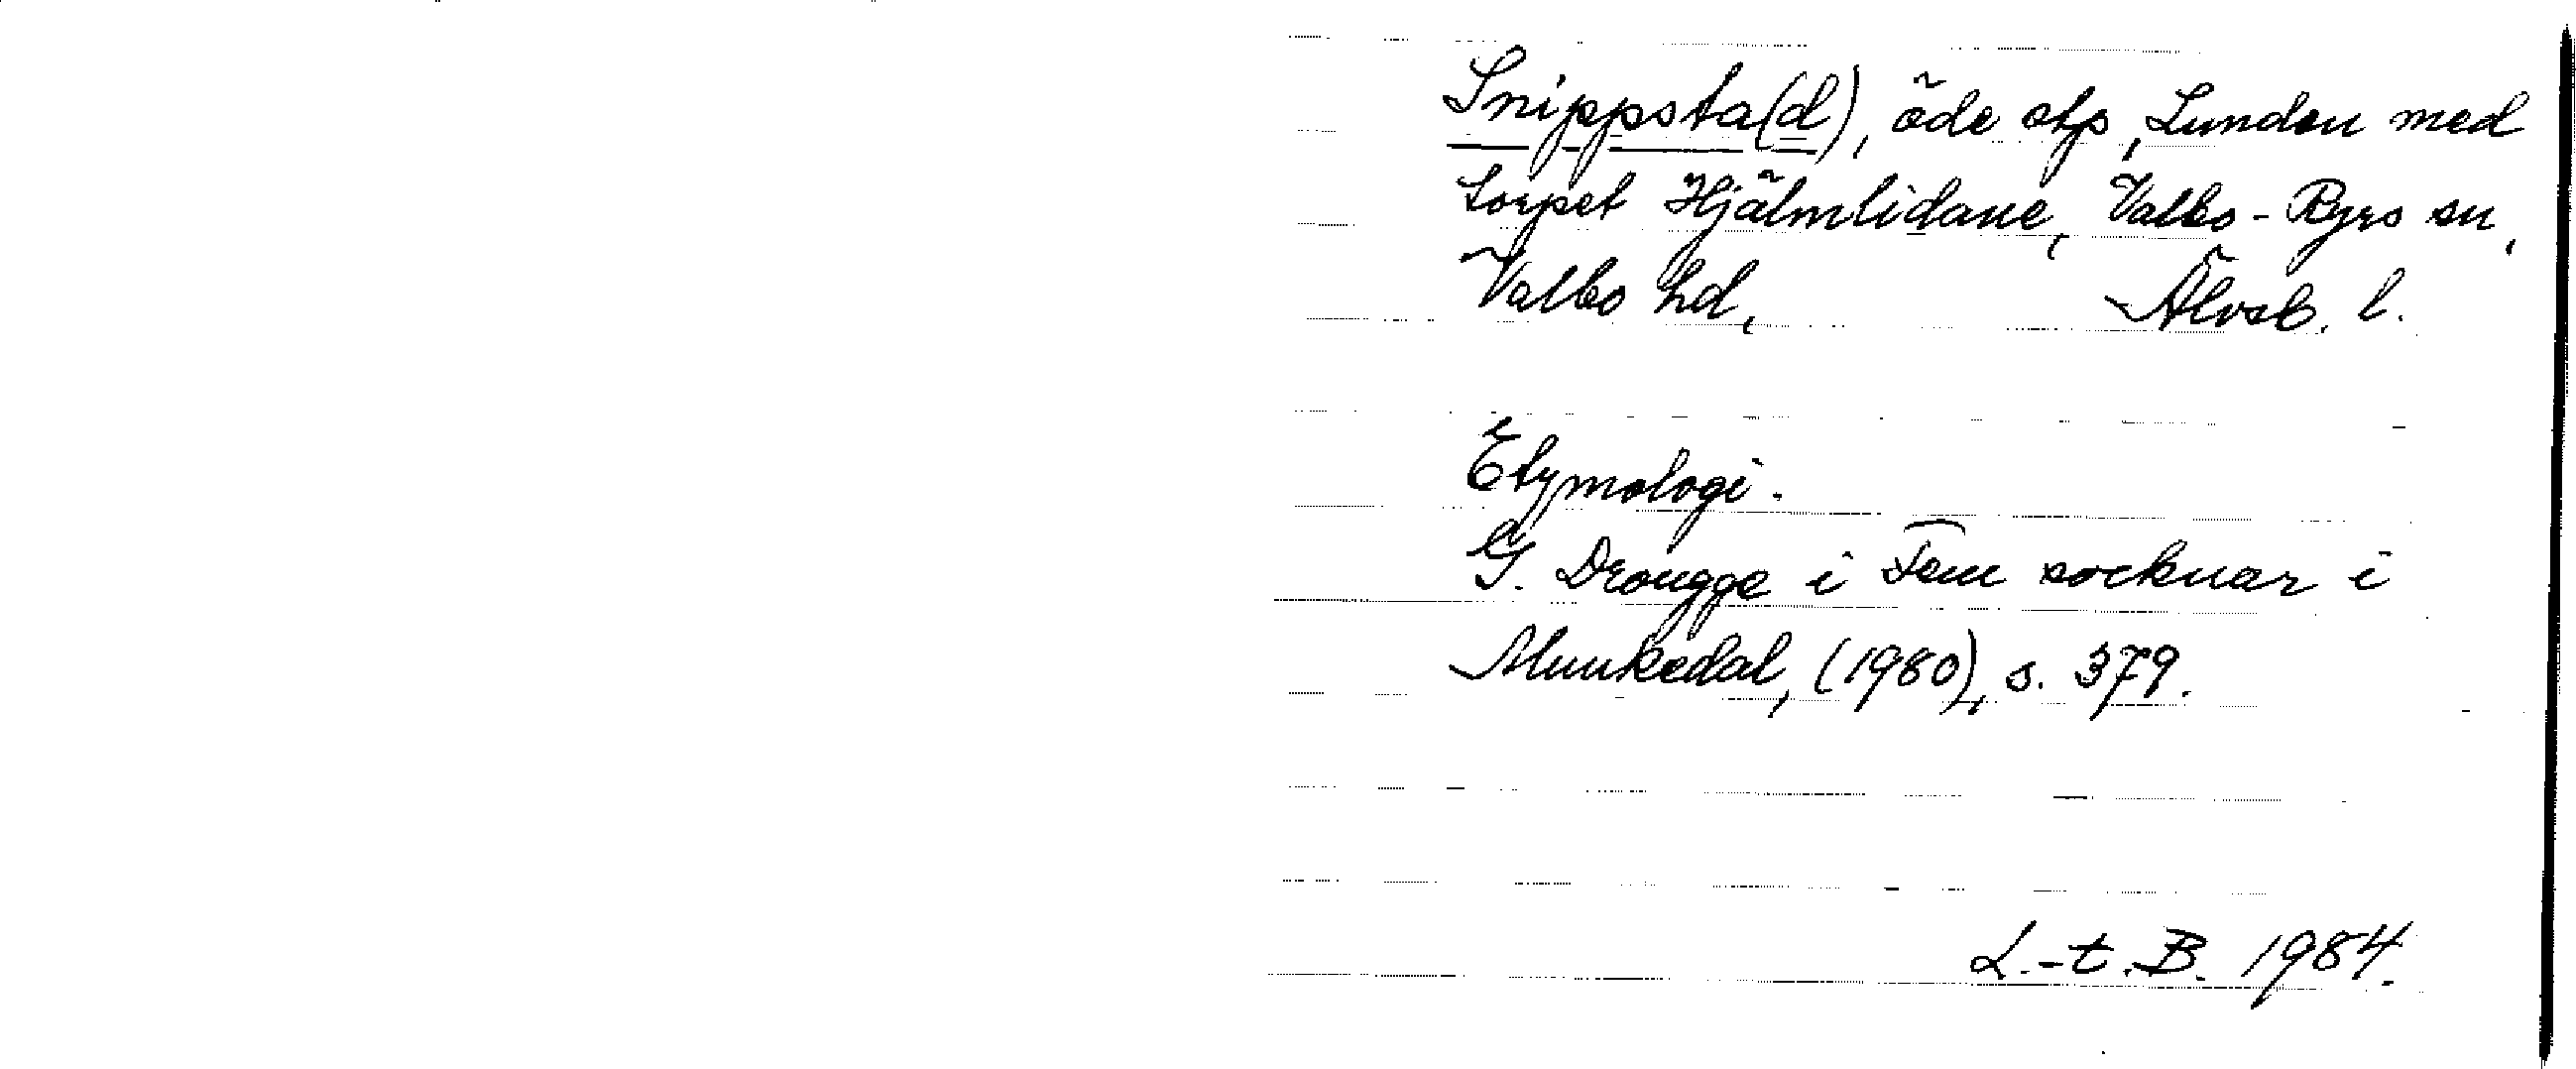 Snippsta(d), öde stp, Lunden med
torpet Hjälmlidane, Valbo-Ryrs sn,
Valbo hd, Älvsb. l.
Etymologi.
G. Drougge i Fem socknar i
Munkedal, (1980), s. 379.
L.-t. B. 1984.